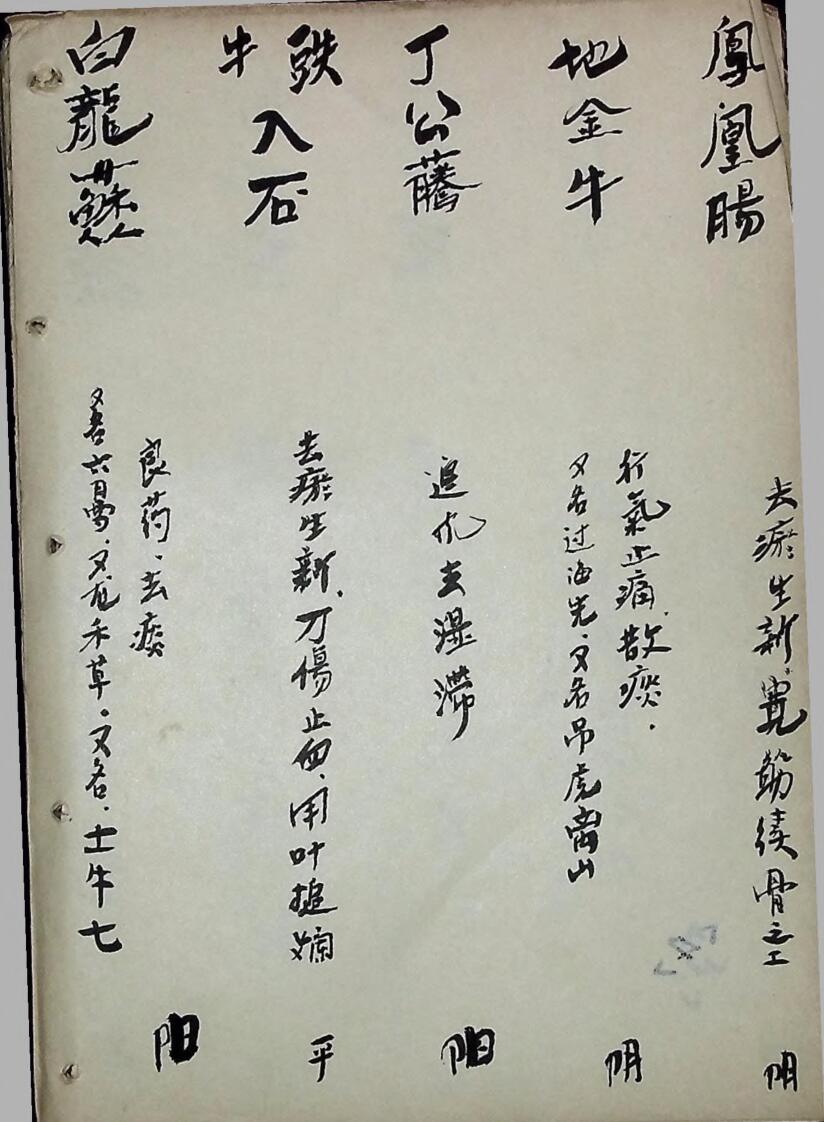 鳳凰腸
去瘀生新、寬筋续骨之工
阴
地金牛
行氣止痛、散瘀.
又名过海先、又名吊虎离山
阴
丁公藤
追风去湿滞
阳
鉄牛入石
去瘀生新、刀傷止血、用叶搥爛
平
白龍蘇
良药、去瘀
又名六月雪、又龙禾草、又名、土牛七
阳